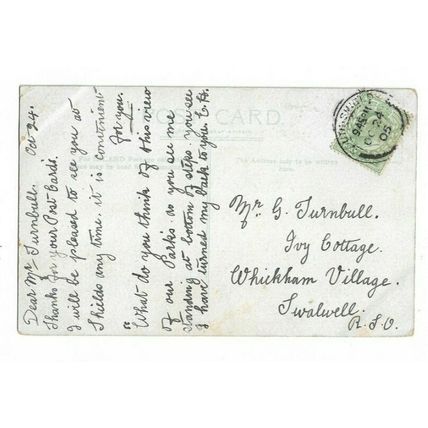 Oct 24.
Dear Mr Turnbull.
Thanks for your Post Cards.
I will be pleased to see you at
Shields any time it is convenient
for you.
"What do you think of this view
of our Parks as you see me
standing at bottom of steps. you see
I have turned my back to you. E.A.
POST CARD.
The Address only to be written
OC 24
05
Mr G. Turnbull.
Ivy Cottage.
Whickham Village.
Swalwell.
R.S.O.